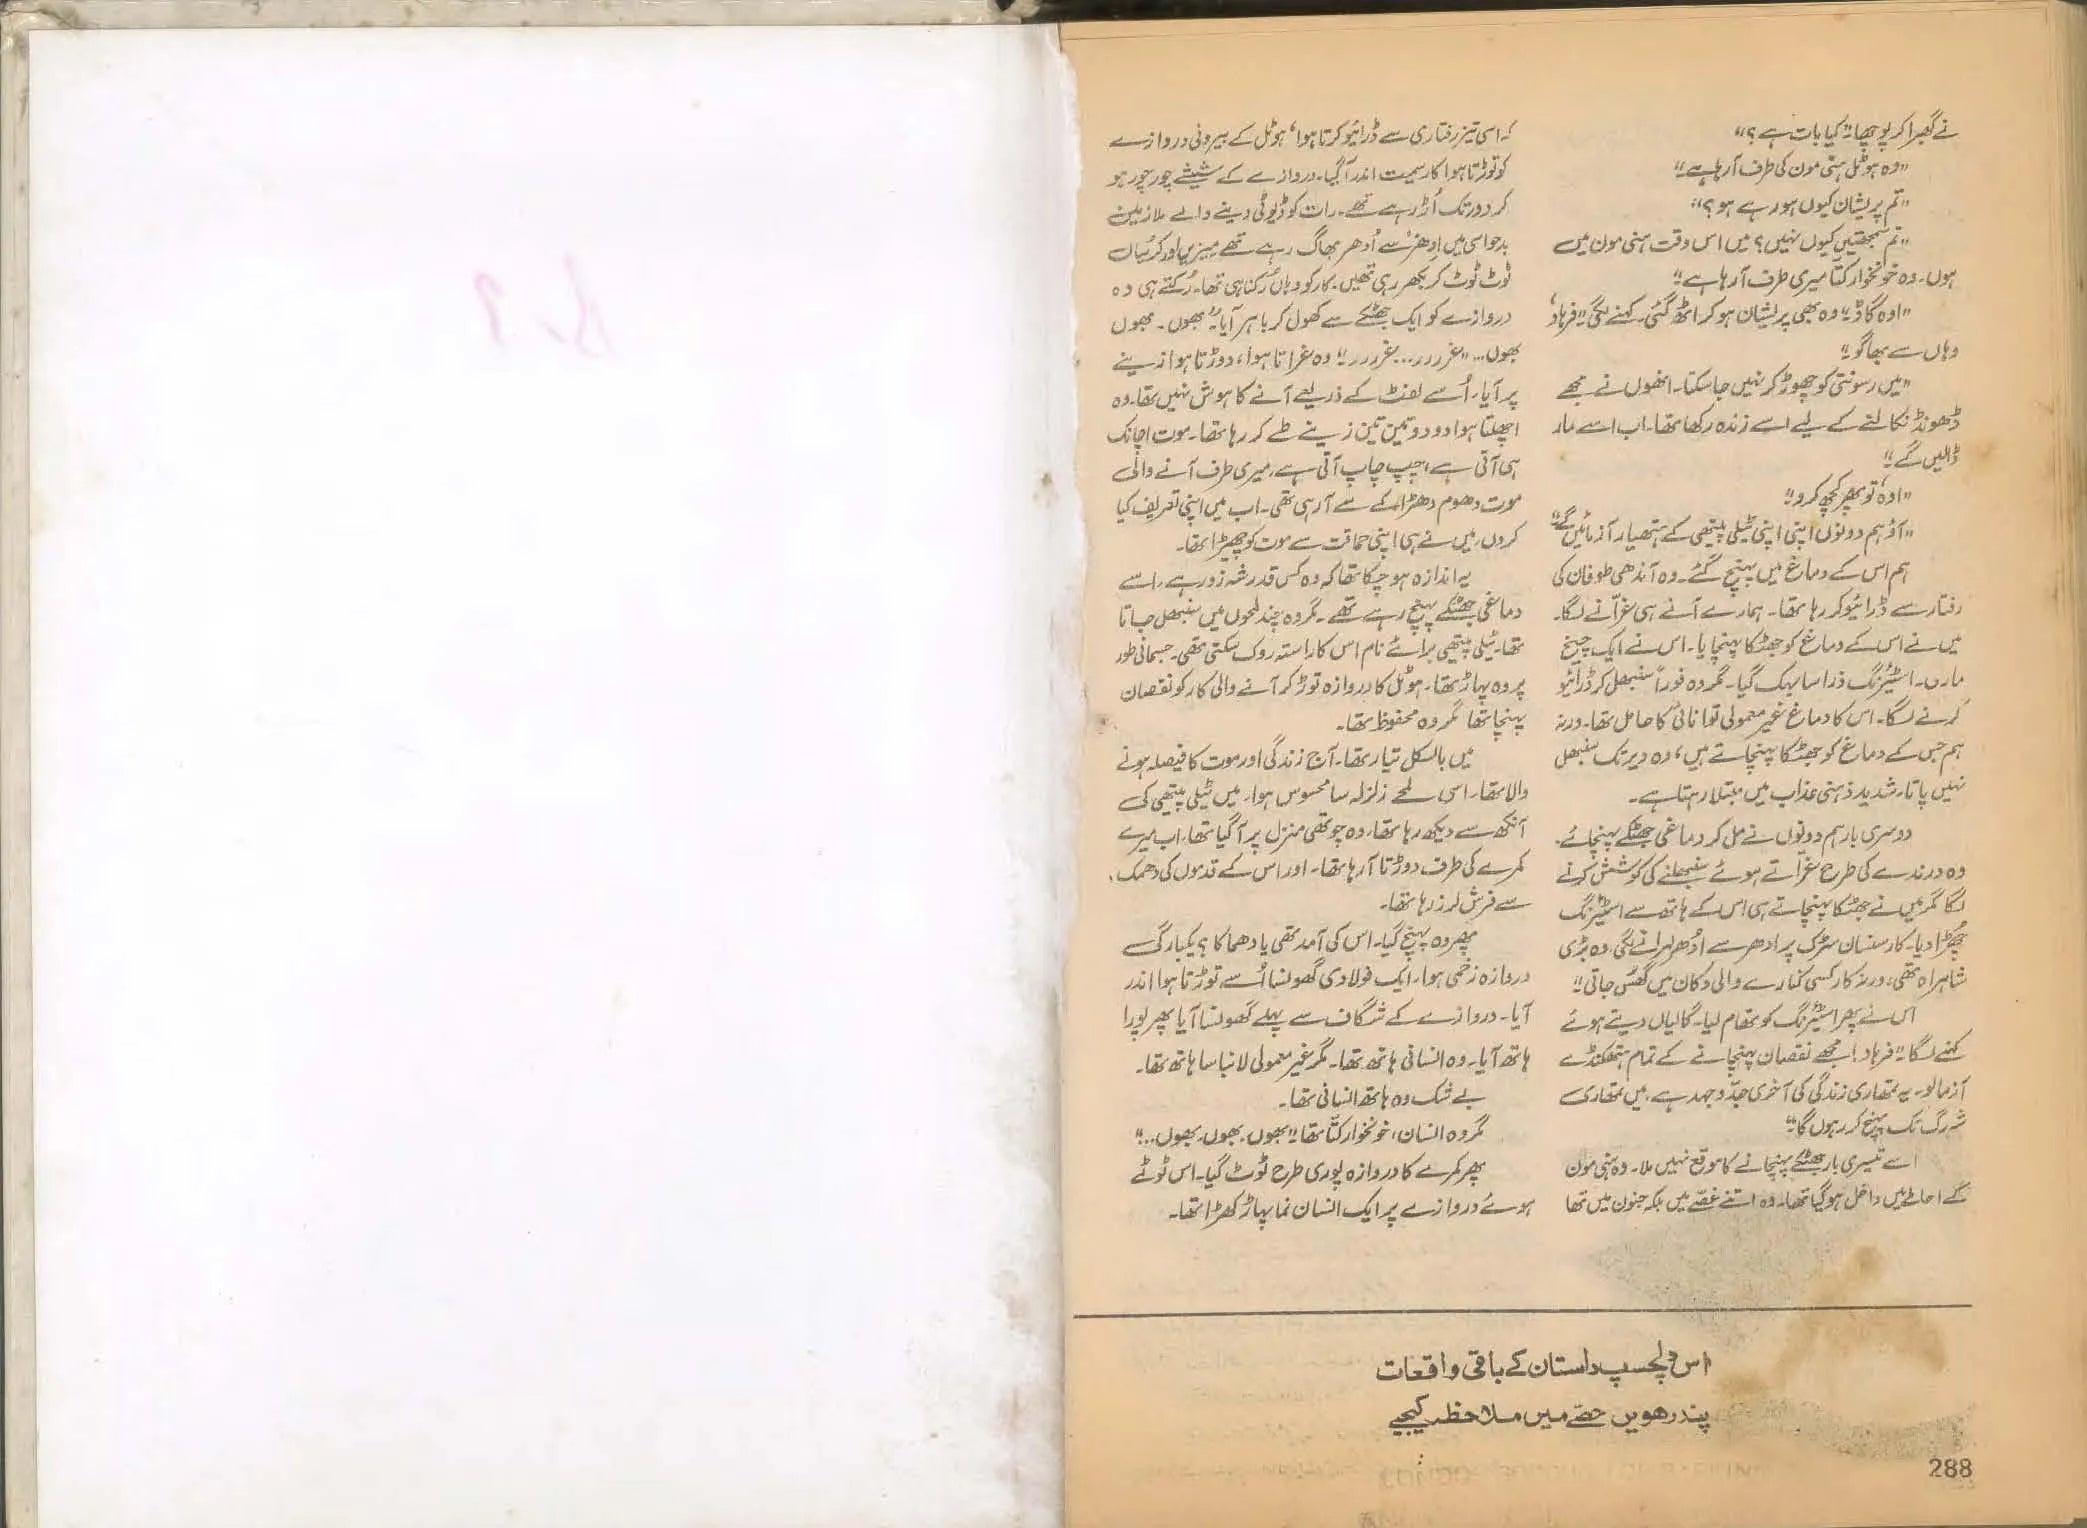 نے گھبرا کر پوچھا "کیا بات ہے؟"
"وہ ہوٹل ہنی مون کی طرف آ رہا ہے"
"تم پریشان کیوں ہو رہے ہو؟"
"تم سمجھتیں کیوں نہیں؟ میں اس وقت ہنی مون میں
ہوں۔ وہ خونخوار کتا میری طرف آ رہا ہے"
"اوہ گاڈ" وہ بھی پریشان ہو کر اٹھ گئی۔ کہنے لگی "فرہاد،
وہاں سے بھاگو"
"میں رسونتی کو چھوڑ کر نہیں جا سکتا۔ انھوں نے مجھے
ڈھونڈ نکالنے کے لیے اسے زندہ رکھا تھا۔ اب اسے مار
ڈالیں گے"
"اوہ، تو پھر کچھ کرو"
"آؤ ہم دونوں اپنی اپنی ٹیلی پیتھی کے ہتھیار آزمائیں گے"
ہم اس کے دماغ میں پہنچ گئے۔ وہ آندھی طوفان کی
رفتار سے ڈرائیو کر رہا تھا۔ ہمارے آتے ہی غرّانے لگا۔
میں نے اس کے دماغ کو جھٹکا پہنچایا۔ اس نے ایک چیخ
ماری۔ اسٹیئرنگ ذرا سا بہک گیا۔ مگر وہ فوراً سنبھل کر ڈرائیو
کرنے لگا۔ اس کا دماغ غیر معمولی توانائی کا حامل تھا۔ ورنہ
ہم جس کے دماغ کو جھٹکا پہنچاتے ہیں، وہ دیر تک سنبھل
نہیں پاتا۔ شدید ذہنی عذاب میں مبتلا رہتا ہے۔
دوسری بار ہم دونوں نے مل کر دماغی جھٹکے پہنچائے۔
وہ درندے کی طرح غرّاتے ہوئے سنبھلنے کی کوشش کرنے
لگا مگر میں نے جھٹکا پہنچاتے ہی اس کے ہاتھ سے اسٹیئرنگ
چھڑا دیا۔ کار سنسان سڑک پر ادھر سے اُدھر لہرانے لگی۔ وہ بڑی
شاہراہ تھی، ورنہ کار کسی کنارے والی دکان میں گھس جاتی"
اس نے پھر اسٹیئرنگ کو تھام لیا۔ گالیاں دیتے ہوئے
کہنے لگا "فرہاد! مجھے نقصان پہنچانے کے تمام ہتھکنڈے
آزما لو۔ یہ تمھاری زندگی کی آخری جدّوجہد ہے، میں تمھاری
شہ رگ تک پہنچ کر رہوں گا"
اسے تیسری بار جھٹکے پہنچانے کا موقع نہیں ملا۔ وہ ہنی مون
کے احاطے میں داخل ہو گیا تھا۔ وہ اتنے غصّے میں بلکہ جنون میں تھا
کہ اسی تیز رفتاری سے ڈرائیو کرتا ہوا، ہوٹل کے بیرونی دروازے
کو توڑتا ہوا کار سمیت اندر آ گیا۔ دروازے کے شیشے چور چور ہو
کر دور تک اُڑ رہے تھے۔ رات کو ڈیوٹی دینے والے ملازمین
بدحواسی میں اِدھر سے اُدھر بھاگ رہے تھے میزیں اور کرسیاں
ٹوٹ ٹوٹ کر بکھر رہی تھیں۔ کار کو وہاں رُکنا ہی تھا۔ رُکتے ہی وہ
دروازے کو ایک جھٹکے سے کھول کر باہر آیا۔ "بھوں۔ بھوں
بھوں... "غرررر... غرررر" وہ غراتا ہوا، دوڑتا ہوا زینے
پر آیا۔ اُسے لفٹ کے ذریعے آنے کا ہوش نہیں تھا۔ وہ
اچھلتا ہوا دو دو تین تین زینے طے کر رہا تھا۔ موت اچانک
ہی آتی ہے، چپ چاپ آتی ہے، میری طرف آنے والی
موت دھوم دھڑاکے سے آ رہی تھی۔ اب میں اپنی تعریف کیا
کروں، میں نے ہی اپنی حماقت سے موت کو چھیڑا تھا۔
یہ اندازہ ہو چکا تھا کہ وہ کس قدر شہ زور ہے، اسے
دماغی جھٹکے پہنچ رہے تھے۔ مگر وہ چند لمحوں میں سنبھل جاتا
تھا۔ ٹیلی پیتھی برائے نام اس کا راستہ روک سکتی تھی۔ جسمانی طور
پر وہ پہاڑ تھا۔ ہوٹل کا دروازہ توڑ کر آنے والی کار کو نقصان
پہنچا تھا مگر وہ محفوظ تھا۔
میں بالکل تیار تھا۔ آج زندگی اور موت کا فیصلہ ہونے
والا تھا۔ اسی لمحے زلزلہ سا محسوس ہوا۔ میں ٹیلی پیتھی کی
آنکھ سے دیکھ رہا تھا، وہ چوتھی منزل پر آ گیا تھا۔ اب میرے
کمرے کی طرف دوڑتا آ رہا تھا۔ اور اس کے قدموں کی دھمک
سے فرش لرز رہا تھا۔
پھر وہ پہنچ گیا۔ اس کی آمد تھی یا دھماکا؟ یکبارگی
دروازہ زخمی ہوا۔ ایک فولادی گھونسا اُسے توڑتا ہوا اندر
آیا۔ دروازے کے شگاف سے پہلے گھونسا آیا پھر پورا
ہاتھ آیا۔ وہ انسانی ہاتھ تھا۔ مگر غیر معمولی لانبا سا ہاتھ تھا۔
بے شک وہ ہاتھ انسانی تھا۔
مگر وہ انسان، خونخوار کتّا تھا "بھوں، بھوں، بھوں..."
پھر کمرے کا دروازہ پوری طرح ٹوٹ گیا۔ اس ٹوٹے
ہوئے دروازے پر ایک انسان نما پہاڑ کھڑا تھا۔
اس دلچسپ داستان کے باقی واقعات
پندرھویں حصّے میں ملاحظہ کیجیے
288